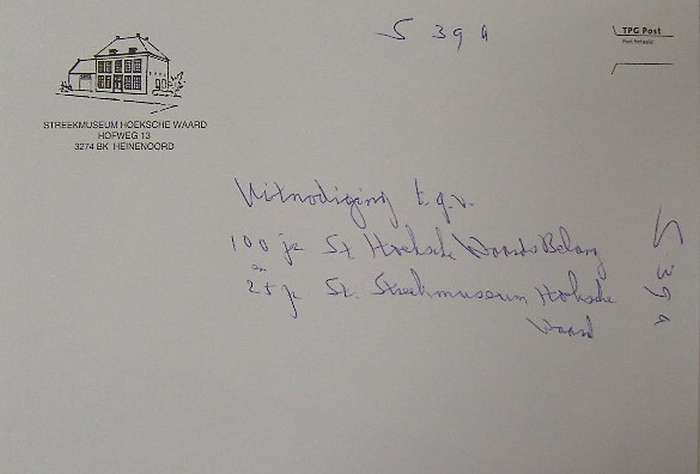 S 39 A
TPG Post
Port Betaald
STREEKMUSEUM HOEKSCHE WAARD
HOFWEG 13
3274 BK HEINENOORD
Uitnodiging t.g.v.
100 jr St Hoeksche Waards Belang
en
25 jr St. Streekmuseum Hoeksche
Waard
S 39 A